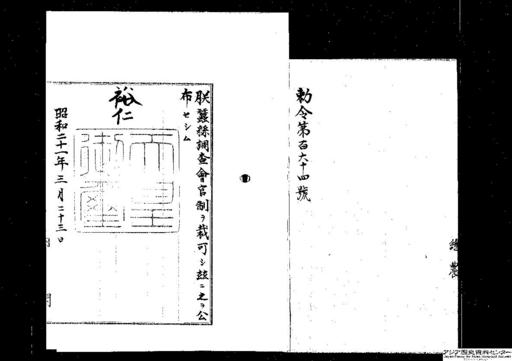 勅令第百六十四號
總 農
朕蠶絲調査會官制ヲ裁可シ茲ニ之ヲ公
布セシム
裕仁
天皇
御璽
昭和二十一年三月二十三日
アジア歴史資料センター